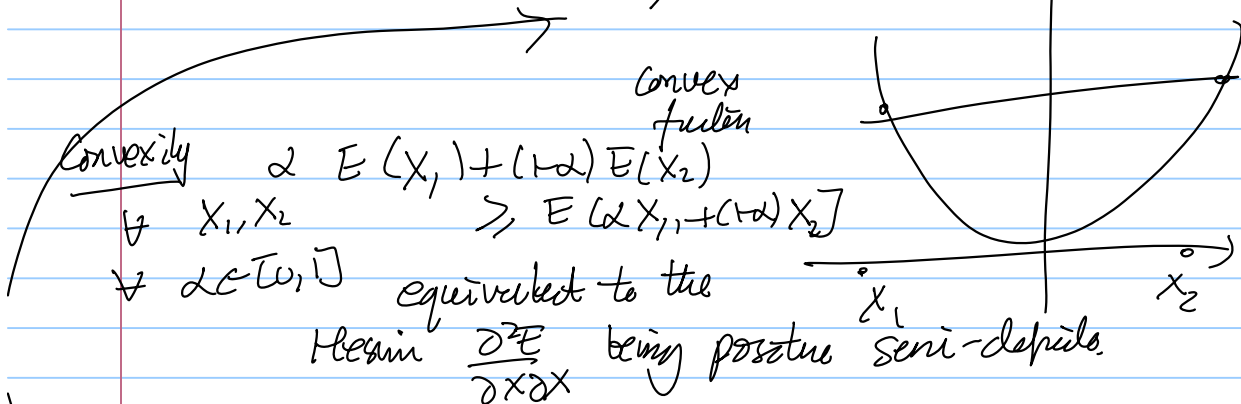 convex
function
Convexity α E(X₁)+(1-α)E(X₂)
∀ X₁,X₂ ≥ E(αX₁,+(1-α)X₂]
∀ α∈[0,1] equivalent to the
X₁ X₂
Hessian ∂²E/∂X∂X being positive semi-definite.